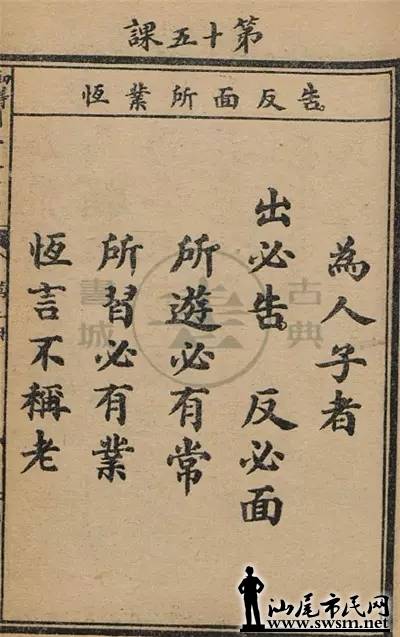 第十五課
告反面所業恆
為人子者
出必告 反必面
所遊必有常
所習必有業
恆言不稱老
古典書城
汕尾市民网
www.swsm.net